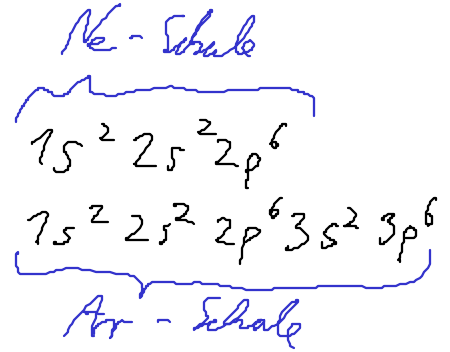 Ne - Schale
1s² 2s² 2p⁶
1s² 2s² 2p⁶ 3s² 3p⁶
Ar - Schale